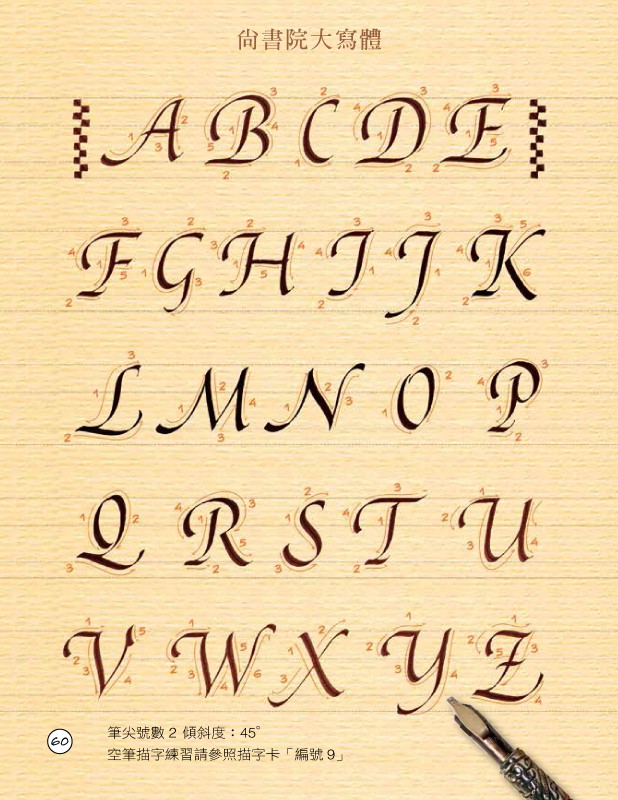 尙書院大寫體
A B C D E
F G H I J K
L M N O P
Q R S T U
V W X Y Z
筆尖號數 2 傾斜度：45°
60
空筆描字練習請參照描字卡「編號 9」